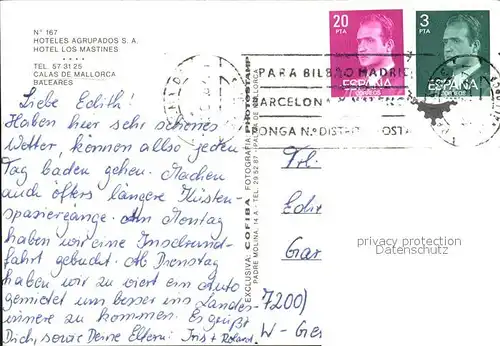 Nº 167
HOTELES AGRUPADOS S. A.
HOTEL LOS MASTINES
TEL 57 31 25
CALAS DE MALLORCA
BALEARES
20
PTA
3
PTA
ESPAÑA
CORREOS
ESPAÑA
CORREOS
PARA BILBAO MADRID
BARCELONA
PONGA Nº DISTRITO POSTAL
Liebe Edith!
Haben hier sehr schönes
Wetter, können allso jeden
Tag baden gehen. Machen
auch öfters längere Küsten-
spaziergänge. Am Montag
haben wir eine Inselrund-
fahrt gebucht. Ab Dienstag
haben wir zu viert ein Auto
gemietet um besser ins Landes-
innere zu kommen. Es grüßt
Dich, sowie Deine Eltern: Iris + Roland
EXCLUSIVA: COFIBA FOTOGRAFIA PHOTOSTAMP
PADRE MOLINA, 14.A - TEL. 29 52 87 - PALMA DE MALLORCA
Frl.
Edit
Gar
7200)
W-Ger
privacy protection
Datenschutz